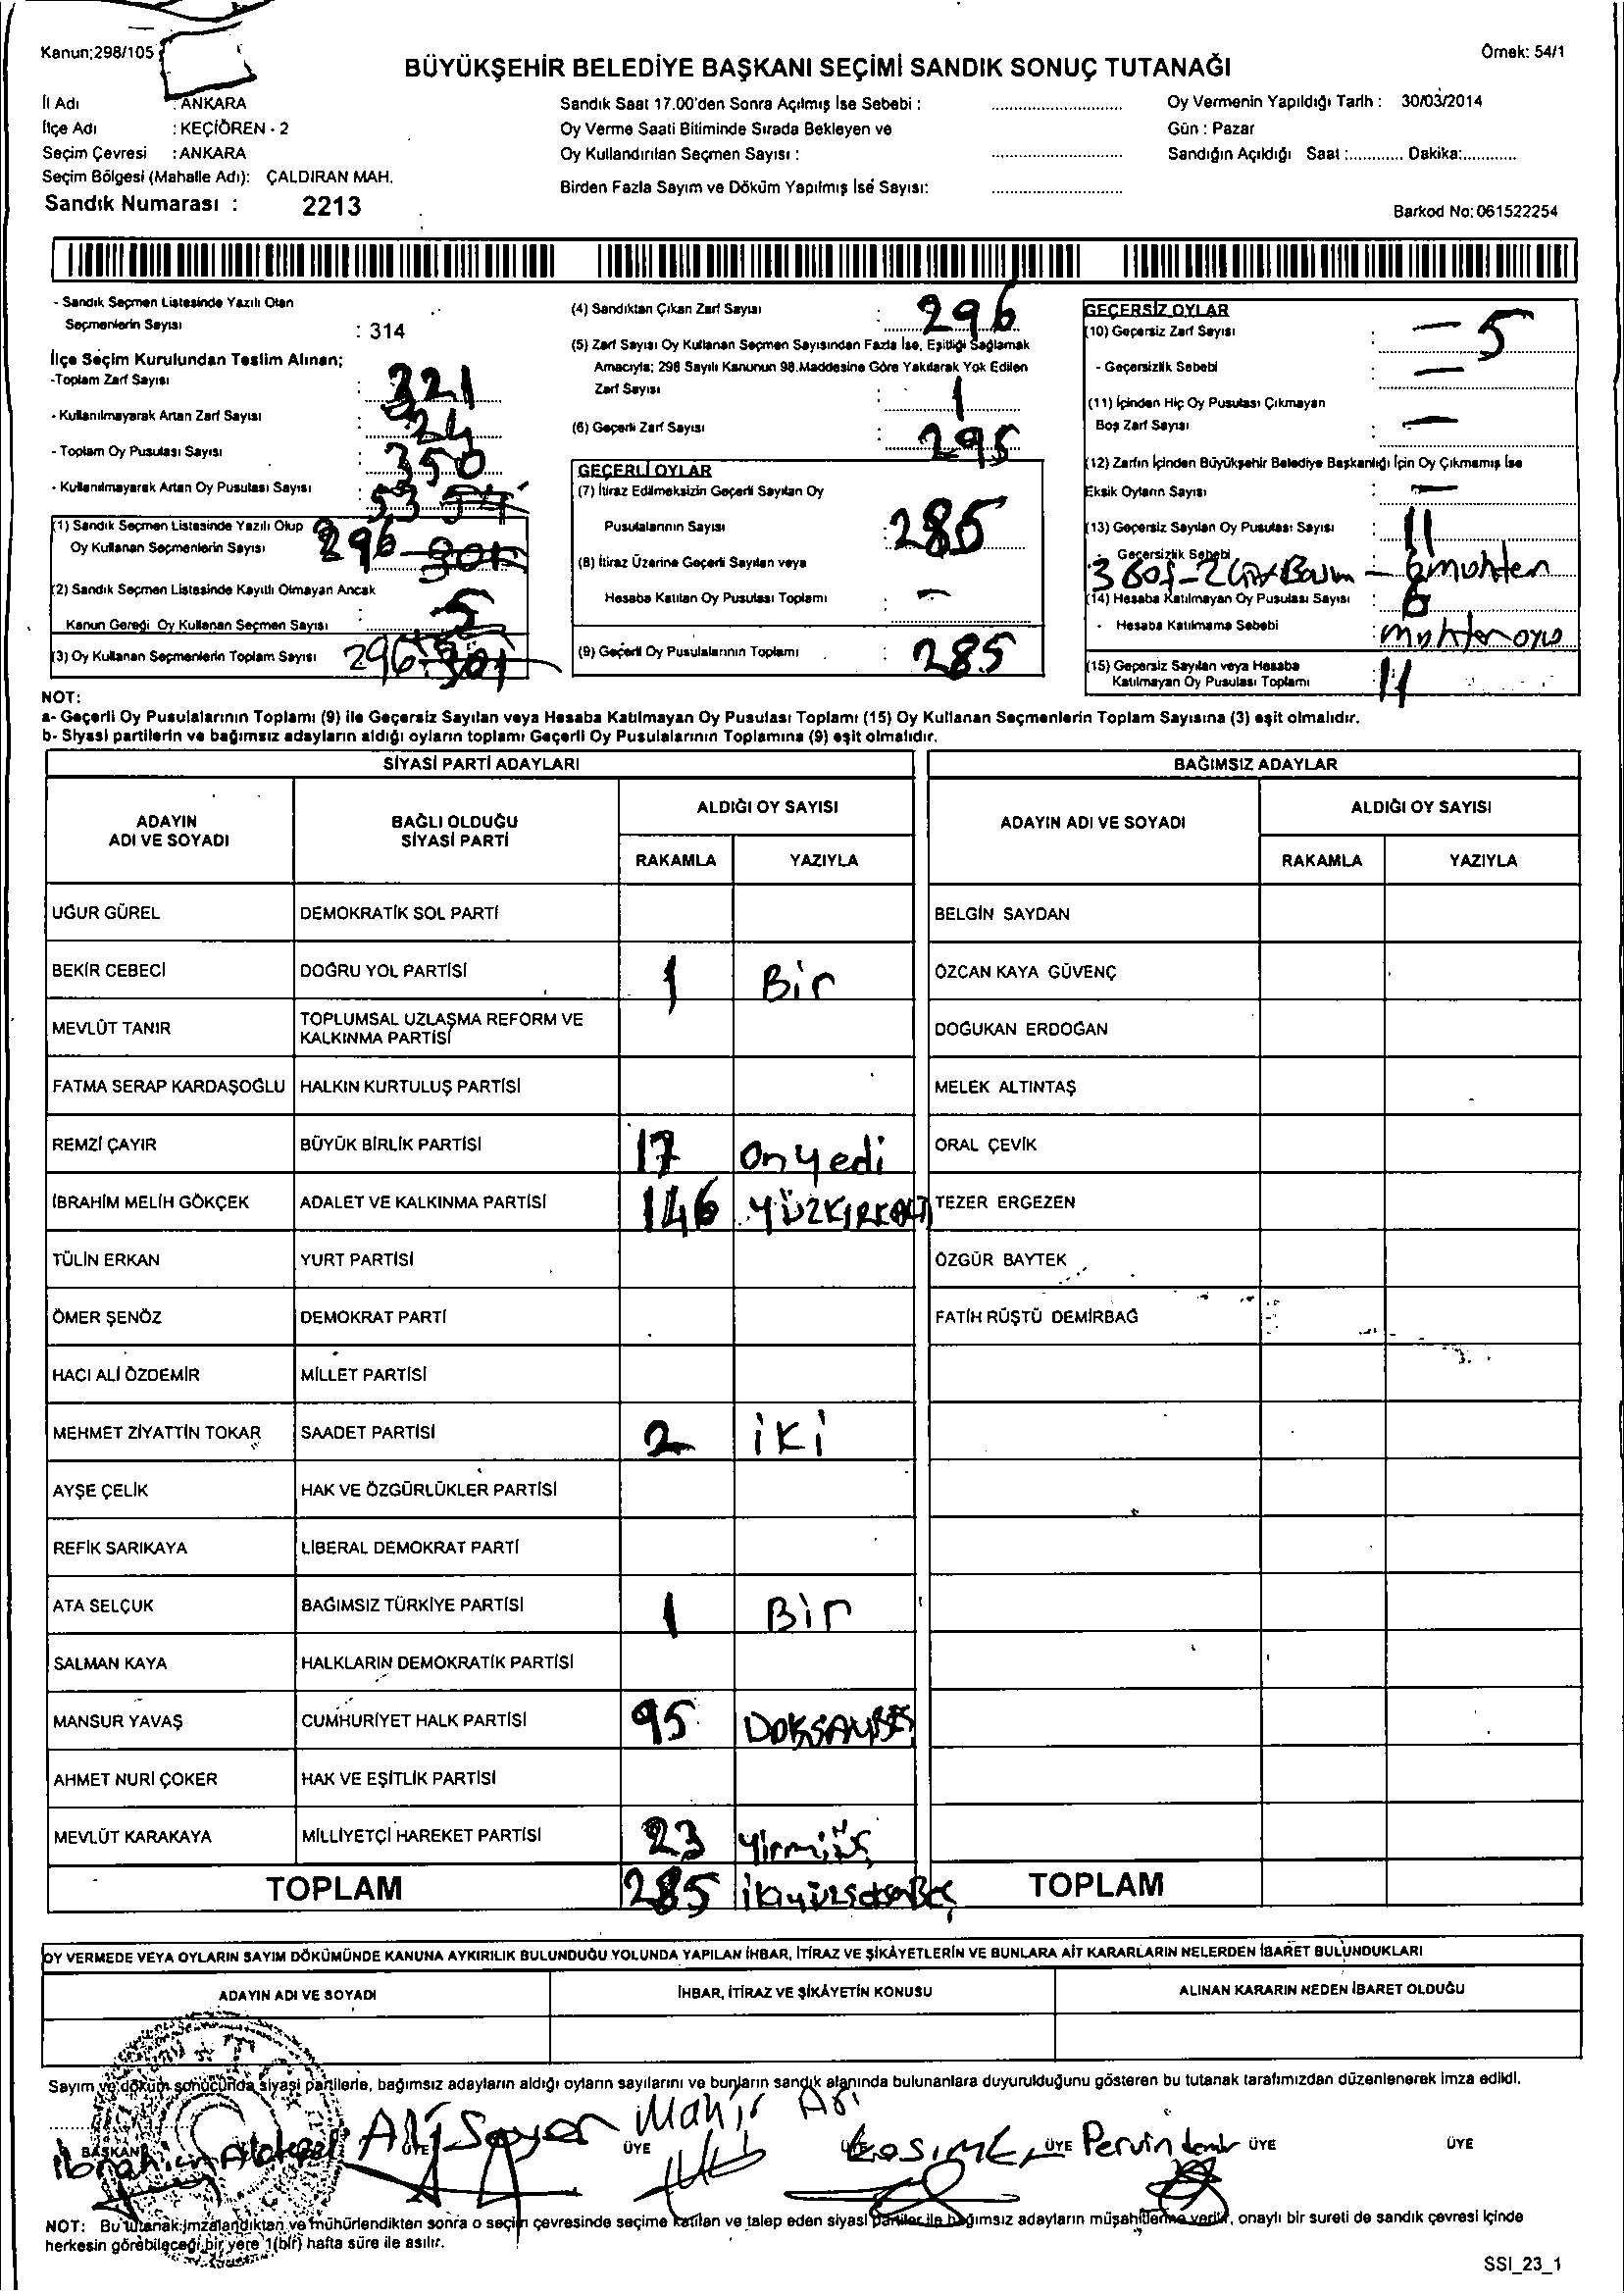 Kanun;298/105
Örnek: 54/1
BÜYÜKŞEHİR BELEDİYE BAŞKANI SEÇİMİ SANDIK SONUÇ TUTANAĞI
İl Adı : ANKARA
İlçe Adı : KEÇİÖREN - 2
Seçim Çevresi : ANKARA
Seçim Bölgesi (Mahalle Adı): ÇALDIRAN MAH.
Sandık Numarası : 2213
Sandık Saat 17.00'den Sonra Açılmış İse Sebebi :
Oy Verme Saati Bitiminde Sırada Bekleyen ve
Oy Kullandırılan Seçmen Sayısı :
Birden Fazla Sayım ve Döküm Yapılmış İse Sayısı:
Oy Vermenin Yapıldığı Tarih : 30/03/2014
Gün : Pazar
Sandığın Açıldığı Saat :............ Dakika:............
Barkod No: 061522254
- Sandık Seçmen Listesinde Yazılı Olan
Seçmenlerin Sayısı : 314
İlçe Seçim Kurulundan Teslim Alınan;
-Toplam Zarf Sayısı : 321
- Kullanılmayarak Artan Zarf Sayısı : 24
- Toplam Oy Pusulası Sayısı : 350
- Kullanılmayarak Artan Oy Pusulası Sayısı : 53
(1) Sandık Seçmen Listesinde Yazılı Olup
Oy Kullanan Seçmenlerin Sayısı 296 301
(2) Sandık Seçmen Listesinde Kayıtlı Olmayan Ancak
Kanun Gereği Oy Kullanan Seçmen Sayısı : 5
(3) Oy Kullanan Seçmenlerin Toplam Sayısı 296 301
(4) Sandıktan Çıkan Zarf Sayısı : 296
(5) Zarf Sayısı Oy Kullanan Seçmen Sayısından Fazla İse, Eşitliği Sağlamak
Amacıyla; 298 Sayılı Kanunun 98.Maddesine Göre Yakılarak Yok Edilen
Zarf Sayısı : 1
(6) Geçerli Zarf Sayısı : 295
GEÇERLİ OYLAR
(7) İtiraz Edilmeksizin Geçerli Sayılan Oy
Pusulalarının Sayısı : 285
(8) İtiraz Üzerine Geçerli Sayılan veya
Hesaba Katılan Oy Pusulası Toplamı : -
(9) Geçerli Oy Pusulalarının Toplamı : 285
GEÇERSİZ OYLAR
(10) Geçersiz Zarf Sayısı : - 5
- Geçersizlik Sebebi : -
(11) İçinden Hiç Oy Pusulası Çıkmayan
Boş Zarf Sayısı : -
(12) Zarfın İçinden Büyükşehir Belediye Başkanlığı İçin Oy Çıkmamış İse
Eksik Oyların Sayısı : -
(13) Geçersiz Sayılan Oy Pusulası Sayısı : 11
- Geçersizlik Sebebi
3 Boş - 2 - 6 muhten
(14) Hesaba Katılmayan Oy Pusulası Sayısı : 6
- Hesaba Katılmama Sebebi : muhtar oyu
(15) Geçersiz Sayılan veya Hesaba
Katılmayan Oy Pusulası Toplamı : 11
NOT:
a- Geçerli Oy Pusulalarının Toplamı (9) ile Geçersiz Sayılan veya Hesaba Katılmayan Oy Pusulası Toplamı (15) Oy Kullanan Seçmenlerin Toplam Sayısına (3) eşit olmalıdır.
b- Siyasi partilerin ve bağımsız adayların aldığı oyların toplamı Geçerli Oy Pusulalarının Toplamına (9) eşit olmalıdır.
SİYASİ PARTİ ADAYLARI
ADAYIN ADI VE SOYADI BAĞLI OLDUĞU SİYASİ PARTİ ALDIĞI OY SAYISI
RAKAMLA YAZIYLA
UĞUR GÜREL DEMOKRATİK SOL PARTİ
BEKİR CEBECİ DOĞRU YOL PARTİSİ 1 Bir
MEVLÜT TANIR TOPLUMSAL UZLAŞMA REFORM VE KALKINMA PARTİSİ
FATMA SERAP KARDAŞOĞLU HALKIN KURTULUŞ PARTİSİ
REMZİ ÇAYIR BÜYÜK BİRLİK PARTİSİ 17 Onyedi
İBRAHİM MELİH GÖKÇEK ADALET VE KALKINMA PARTİSİ 146 YÜZKIRKALTI
TÜLİN ERKAN YURT PARTİSİ
ÖMER ŞENÖZ DEMOKRAT PARTİ
HACI ALİ ÖZDEMİR MİLLET PARTİSİ
MEHMET ZİYATTİN TOKAR SAADET PARTİSİ 2 iKi
AYŞE ÇELİK HAK VE ÖZGÜRLÜKLER PARTİSİ
REFİK SARIKAYA LİBERAL DEMOKRAT PARTİ
ATA SELÇUK BAĞIMSIZ TÜRKİYE PARTİSİ 1 Bir
SALMAN KAYA HALKLARIN DEMOKRATİK PARTİSİ
MANSUR YAVAŞ CUMHURİYET HALK PARTİSİ 95 DOKSANBEŞ
AHMET NURİ ÇOKER HAK VE EŞİTLİK PARTİSİ
MEVLÜT KARAKAYA MİLLİYETÇİ HAREKET PARTİSİ 23 Yirmiüç
TOPLAM 285 ikiyüzseksenBeş
BAĞIMSIZ ADAYLAR
ADAYIN ADI VE SOYADI ALDIĞI OY SAYISI
RAKAMLA YAZIYLA
BELGİN SAYDAN
ÖZCAN KAYA GÜVENÇ
DOĞUKAN ERDOĞAN
MELEK ALTINTAŞ
ORAL ÇEVİK
TEZER ERGEZEN
ÖZGÜR BAYTEK
FATİH RÜŞTÜ DEMİRBAĞ
TOPLAM
OY VERMEDE VEYA OYLARIN SAYIM DÖKÜMÜNDE KANUNA AYKIRILIK BULUNDUĞU YOLUNDA YAPILAN İHBAR, İTİRAZ VE ŞİKÂYETLERİN VE BUNLARA AİT KARARLARIN NELERDEN İBARET BULUNDUKLARI
ADAYIN ADI VE SOYADI İHBAR, İTİRAZ VE ŞİKÂYETİN KONUSU ALINAN KARARIN NEDEN İBARET OLDUĞU
Sayım ve döküm sonucunda siyasi partilerle, bağımsız adayların aldığı oyların sayılarını ve bunların sandık alanında bulunanlara duyurulduğunu gösteren bu tutanak tarafımızdan düzenlenerek imza edildi.
Ali Sayan Mahir Pervin demir
BAŞKAN ÜYE ÜYE ÜYE ÜYE ÜYE ÜYE
ibrahim
NOT: Bu tutanak imzalandıktan ve mühürlendikten sonra o seçim çevresinde seçime katılan ve talep eden siyasi partiler ile bağımsız adayların müşahitlerine verilir, onaylı bir sureti de sandık çevresi içinde
herkesin görebileceği bir yere 1(bir) hafta süre ile asılır.
SSI_23_1